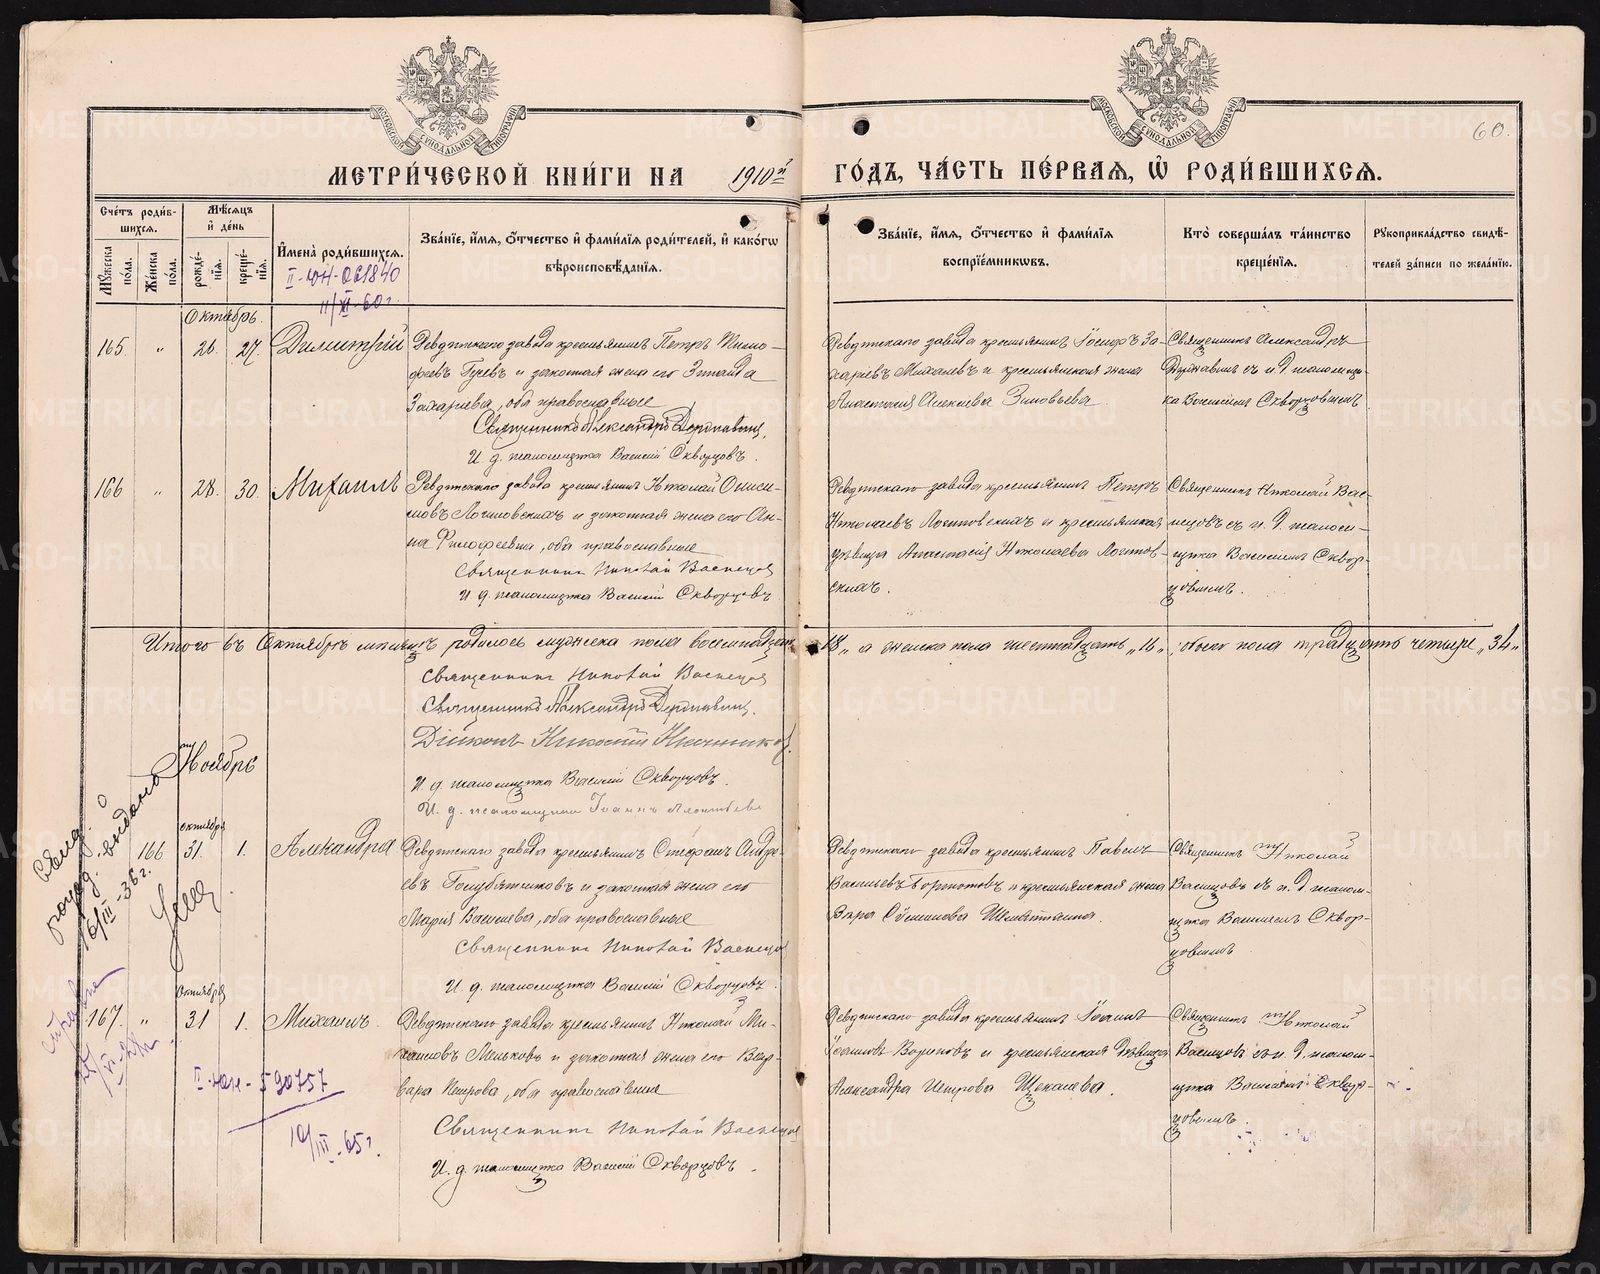 МОСКОВСКОЙ СѴНОДАЛЬНОЙ ТИПОГРАФІИ
МОСКОВСКОЙ СѴНОДАЛЬНОЙ ТИПОГРАФІИ
60.
МЕТРИ́ЧЕСКОЙ КНИ́ГИ НА 1910й ГО́ДЪ, ЧА́СТЬ ПЕ́РВАѦ, Ѡ҆ РОДИ́ВШИХСѦ.
Сче́тъ роди́в-
шихсѧ.
Мꙋ́жеска по́ла.
Же́нска по́ла.
Мѣ́сѧцъ
и҆ де́нь
рожде́-
нїѧ.
креще́-
нїѧ.
И҆мена̀ роди́вшихсѧ.
II-юн-061840
11/XI-60 г.
Зва́нїе, и҆́мѧ, ѻ҆́тчество и҆ фами́лїѧ роди́телей, и҆ како́гѡ
вѣроисповѣ́данїѧ.
Зва́нїе, и҆́мѧ, ѻ҆́тчество и҆ фами́лїѧ
воспрїе́мниковъ.
Кто̀ соверша́лъ та́инство
креще́нїѧ.
Рꙋкоприкла́дство свидѣ́-
телей за́писи по жела́нїю.
Октябрь.
165 " 26. 27. Димитрій
Ревдинскаго завода крестьянинъ Петръ Тимо-
феевъ Гусевъ и законная жена его Зинаида
Захарьева, оба православные
Священникъ Александръ Державинъ.
И. д. псаломщика Василій Скворцовъ.
Ревдинскаго завода крестьянинъ Іосифъ За-
харіевъ Михалевъ и крестьянская жена
Анастасія Алексіева Зиновьева.
Священникъ Александръ
Державинъ съ и. д. псаломщи-
ка Василіемъ Скворцовымъ.
166 " 28. 30. Михаилъ
Ревдинскаго завода крестьянинъ Николай Ониси-
мовъ Логиновскихъ и законная жена его Ан-
на Филофеевна, оба православные
Священникъ Николай Васнецовъ
И. д. псаломщика Василій Скворцовъ
Ревдинскаго завода крестьянинъ Петръ
Николаевъ Логиновскихъ и крестьянская
дѣвица Анастасія Николаева Логинов-
скихъ.
Священникъ Николай Вас-
нецовъ съ и. д. псалом-
щика Василіемъ Сквор-
цовымъ.
Итого въ Октябрѣ мѣсяцѣ родилось мужска пола восемнадцать "18", а женска пола шестнадцать "16", обоего пола тридцать четыре "34"
Священникъ Николай Васнецовъ
Священникъ Александръ Державинъ.
Діаконъ Николай
И. д. псаломщика Василій Скворцовъ.
И. д. псаломщика Іоаннъ
Ноябрь
Свид. о
рожд. выдано
16/III-36 г.
октября
166 31. 1. Александра
Ревдинскаго завода крестьянинъ Стефанъ Андре-
евъ Голубятниковъ и законная жена его
Марія Васильева, оба православные
Священникъ Николай Васнецовъ
И. д. псаломщика Василій Скворцовъ.
Ревдинскаго завода крестьянинъ Павелъ
Васильевъ и крестьянская жена
Вара
Священникъ Николай
Васнецовъ съ и. д. псалом-
щика Василіемъ Сквор-
цовымъ
справка
октября
167. " 31 1. Михаилъ.
Ревдинскаго завода крестьянинъ Николай Ми-
хаиловъ Мельковъ и законная жена его Вар-
вара Петрова, оба православные
Священникъ Николай Васнецовъ
И. д. псаломщика Василій Скворцовъ.
Ревдинскаго завода крестьянинъ Іоаннъ
Іоанновъ и крестьянская дѣвица
Александра Петрова Щекалева.
Священникъ Николай
Васнецовъ съ и. д. псалом-
щика Василіемъ Сквор-
цовымъ.
I-юн-590757
10/III-65 г.
METRIKI.GASO-URAL.RU